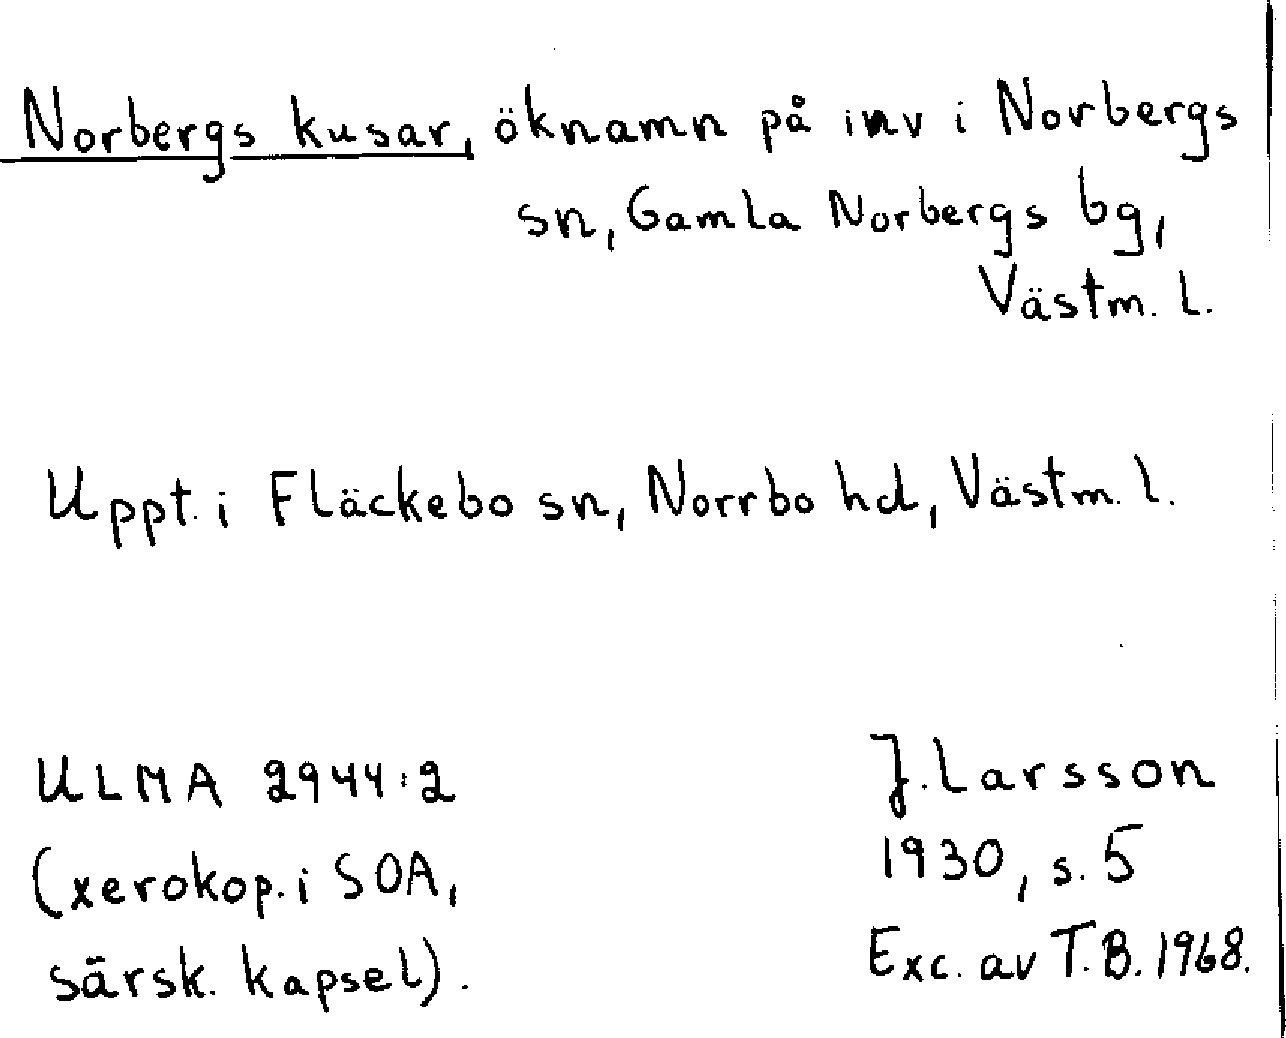 Norbergs kusar, öknamn på inv i Norbergs
sn, Gamla Norbergs bg,
Västm. l.
Uppt. i Fläckebo sn, Norrbo hd, Västm. l.
ULMA 2944:2
(xerokop. i SOA,
särsk. kapsel).
J. Larsson
1930, s. 5
Exc. av T.B. 1968.